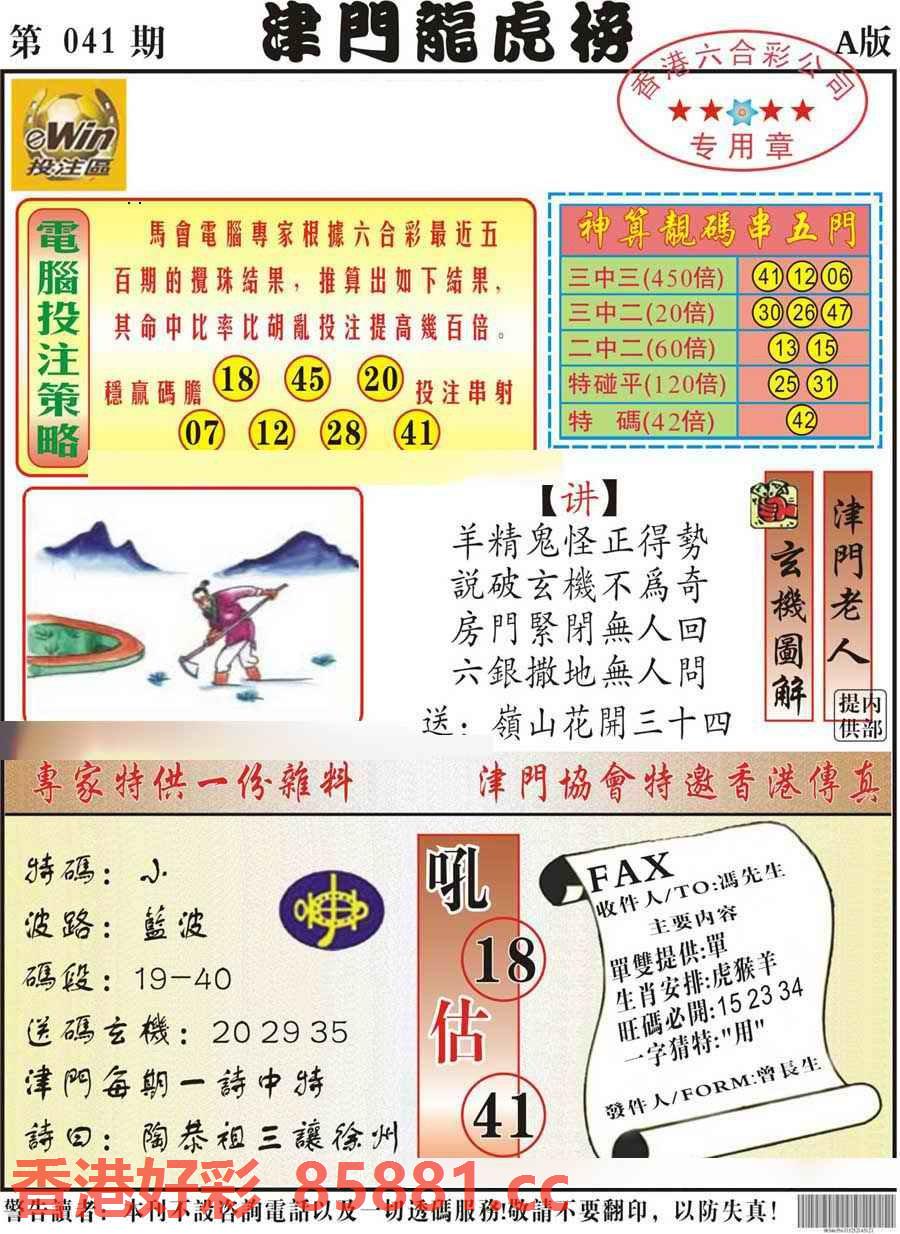 第 041 期
津門龍虎榜
A版
香港六合彩公司
专用章
eWin
投注區
電腦投注策略
馬會電腦專家根據六合彩最近五
百期的攪珠結果，推算出如下結果，
其命中比率比胡亂投注提高幾百倍。
穩贏碼膽 18 45 20 投注串射
07 12 28 41
神算靚碼串五門
三中三(450倍) 41 12 06
三中二(20倍) 30 26 47
二中二(60倍) 13 15
特碰平(120倍) 25 31
特 碼(42倍) 42
【讲】
羊精鬼怪正得勢
説破玄機不爲奇
房門緊閉無人回
六銀撒地無人問
送：嶺山花開三十四
玄機圖解
津門老人
内部提供
專家特供一份雜料
津門協會特邀香港傳真
特碼：小
波路：藍波
碼段：19-40
送碼玄機：20 29 35
津門每期一詩中特
詩曰：陶恭祖三讓徐州
吼
18
估
41
FAX
收件人/TO:馮先生
主要内容
單雙提供:單
生肖安排:虎猴羊
旺碼必開:15 23 34
一字猜特:"用"
發件人/FORM:曾長生
香港好彩 85881.cc
警告讀者：本刊不設咨詢電話以及一切透碼服務!敬請不要翻印，以防失真!